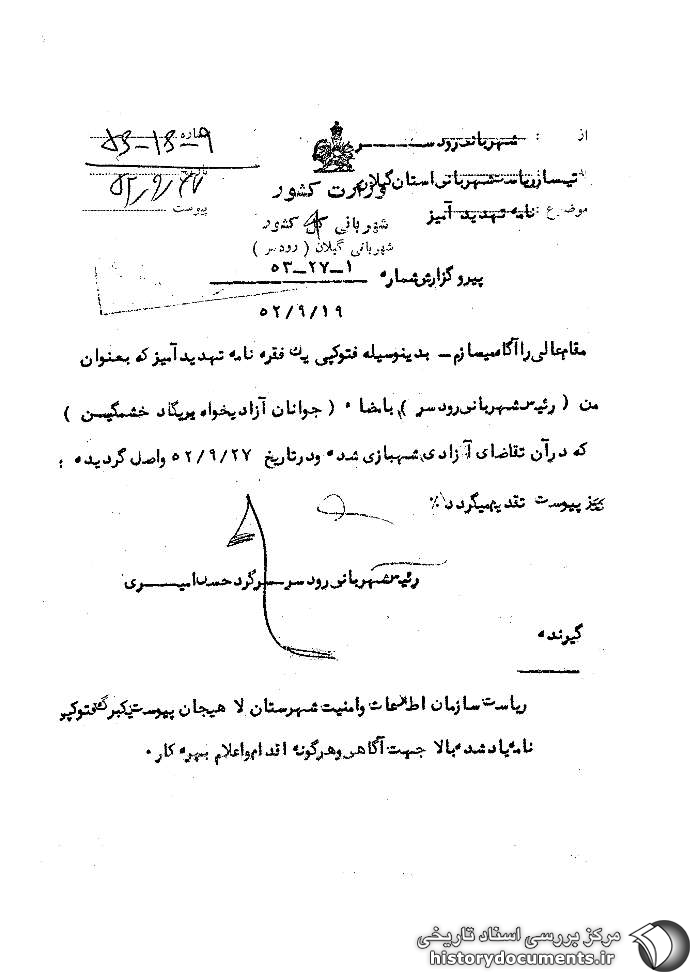 از : شهربانی رودسر
شماره ۹-۱۸-۵۳
به تیمسار ریاست شهربانی استان گیلان
وزارت کشور
موضوع : نامه تهدید آمیز
پیوست
شهربانی کل کشور
شهربانی گیلان ( رودسر )
پیرو گزارش شماره ۱-۲۷-۵۳
۵۲/۹/۱۹
مقام عالی را آگاه میسازم - بدینوسیله فتوکپی یک فقره نامه تهدید آمیز که بعنوان
من ( رئیس شهربانی رودسر ) بامضاء ( جوانان آزادیخواه بریگاد خشمگین )
که درآن تقاضای آزادی شهبازی شده ودرتاریخ ۵۲/۹/۲۷ واصل گردیده :
نیز پیوست تقدیم میگردد %
رئیس شهربانی رودسر سرگرد حسن امیری
گیرنده
ریاست سازمان اطلاعات وامنیت شهرستان لاهیجان پیوست یکبرگ فتوکپی
نامه یاد شده بالا جهت آگاهی وهرگونه اقدام واعلام بهره کار .
مرکز بررسی اسناد تاریخی
historydocuments.ir